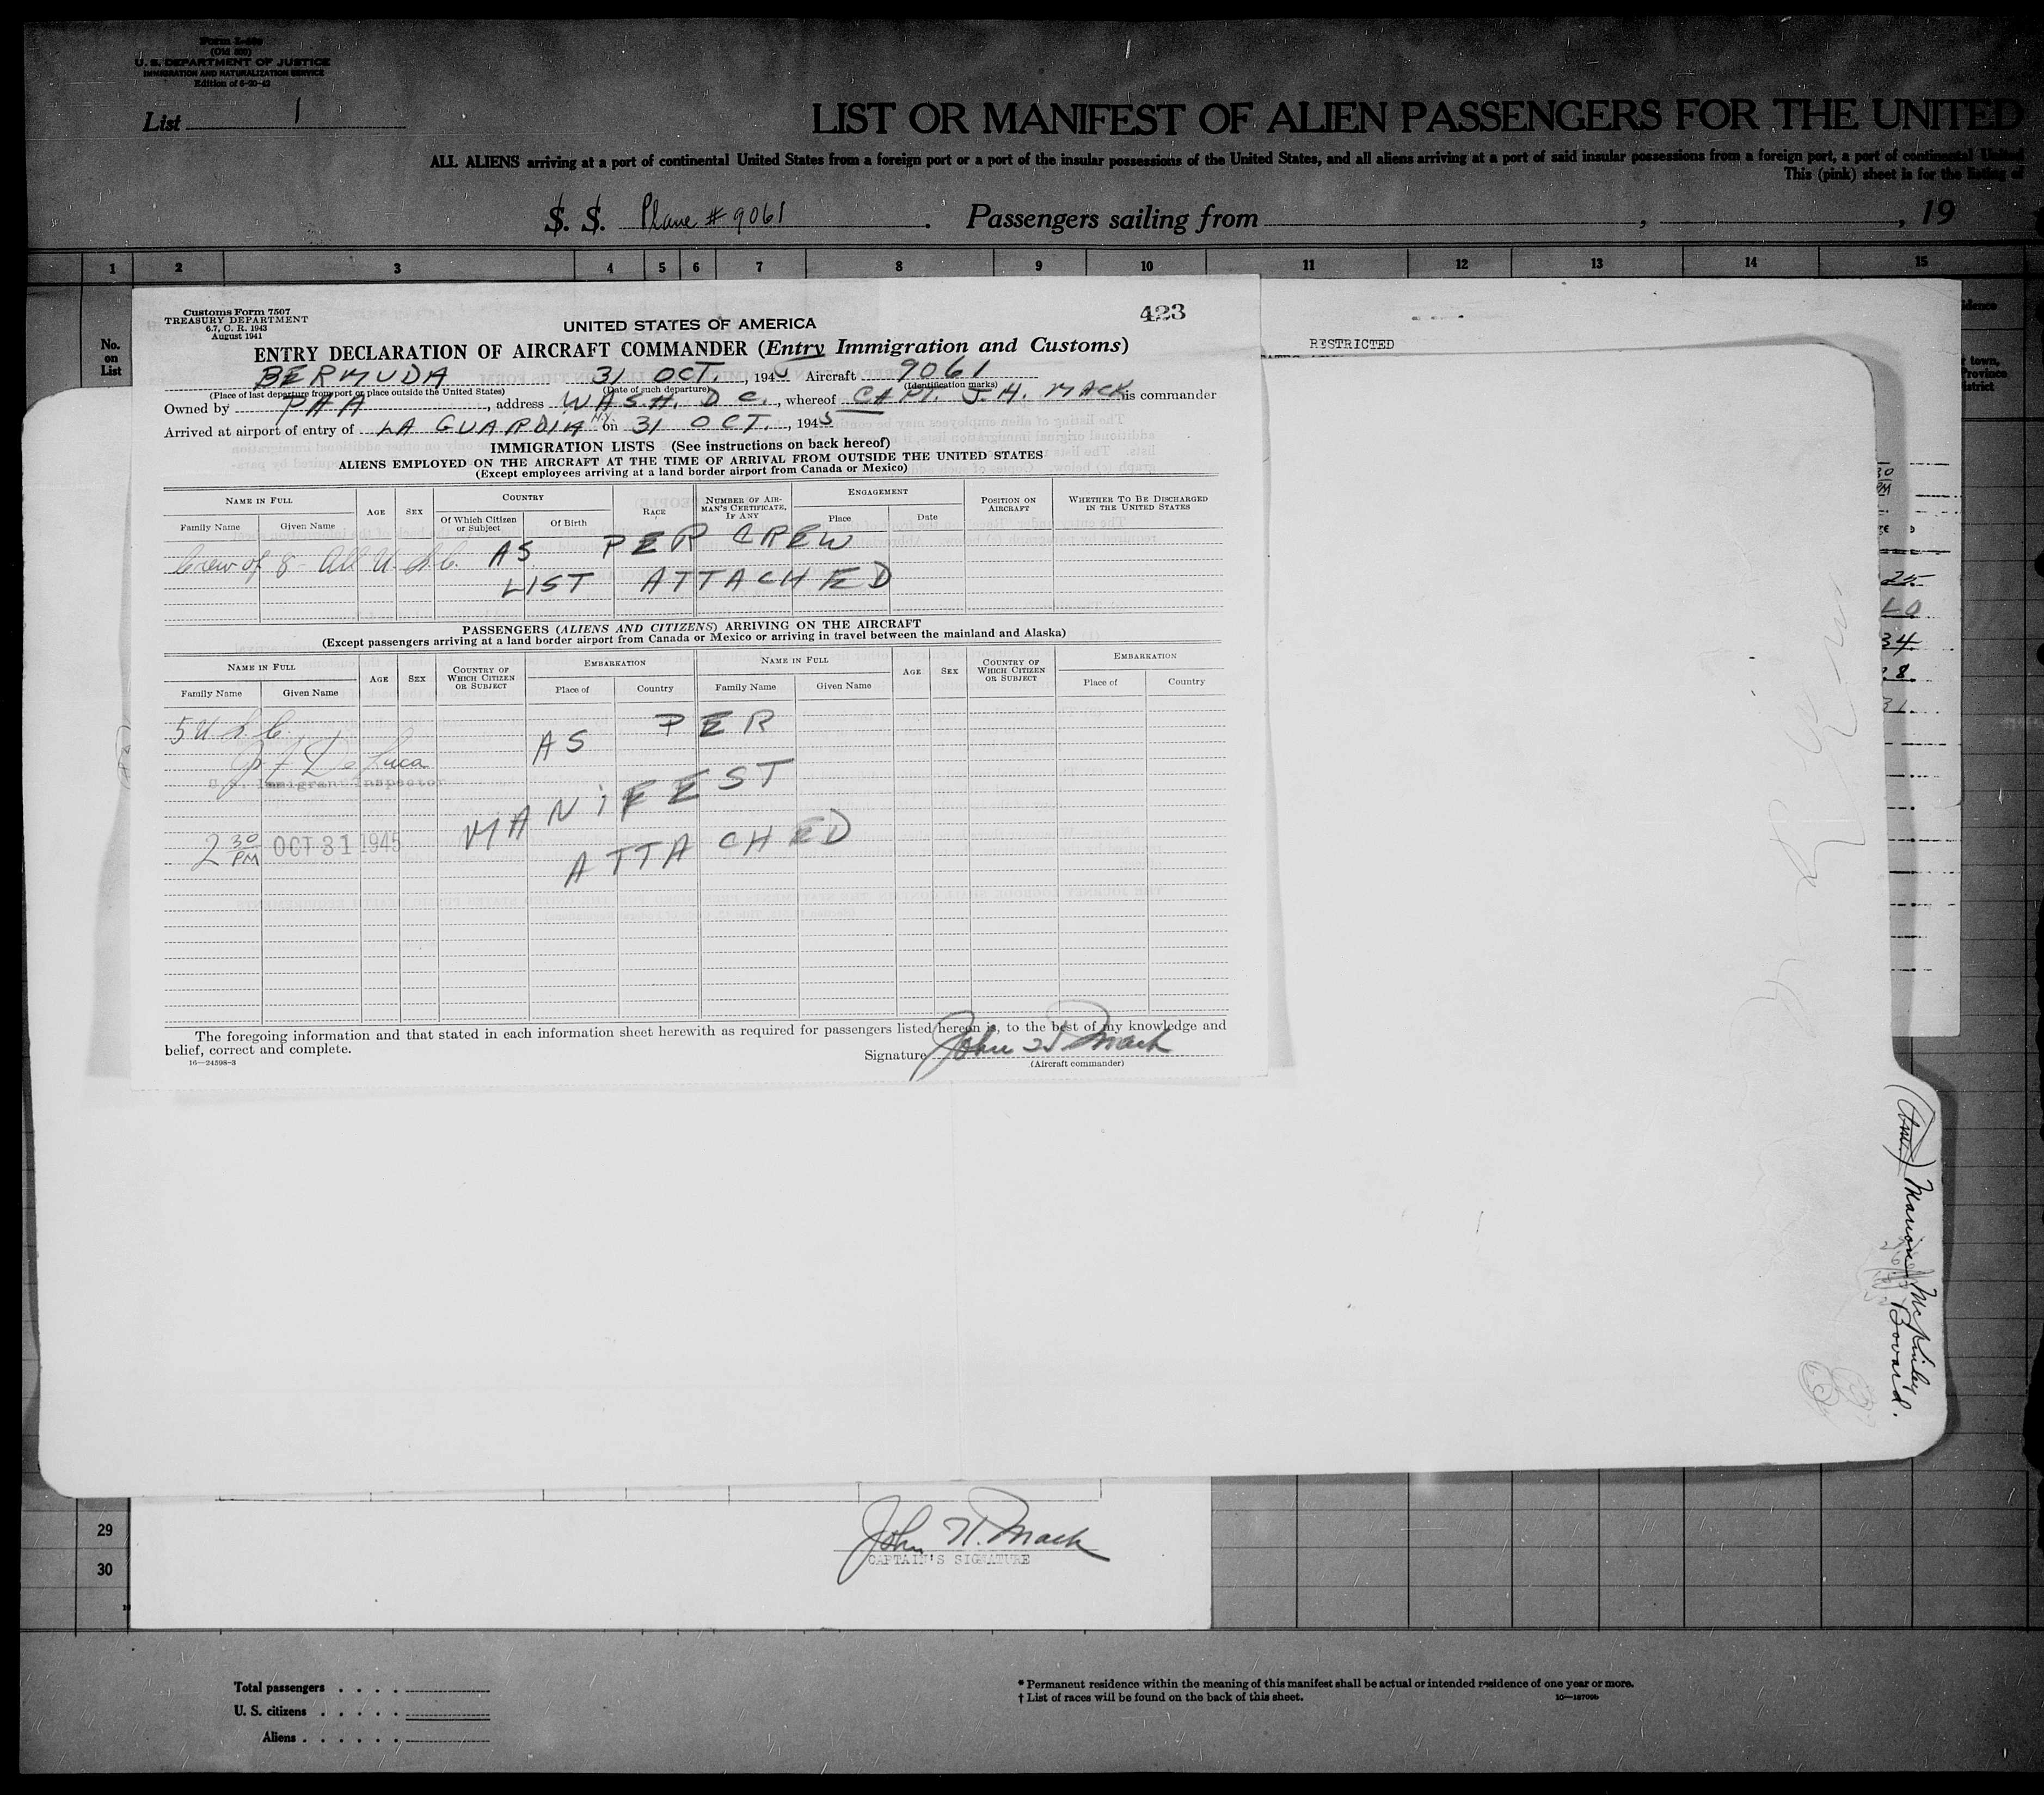 (Old 500)
U. S. DEPARTMENT OF JUSTICE
IMMIGRATION AND NATURALIZATION SERVICE
Edition of 6-20-43
List 1
LIST OR MANIFEST OF ALIEN PASSENGERS FOR THE UNITED
ALL ALIENS arriving at a port of continental United States from a foreign port or a port of the insular possessions of the United States, and all aliens arriving at a port of said insular possessions from a foreign port, a port of continental United
This (pink) sheet is for the listing of
S. S. Plane # 9061. Passengers sailing from , , 19
1 2 3 4 5 6 7 8 9 10 11 12 13 14 15
No. on List
RESTRICTED
Customs Form 7507
TREASURY DEPARTMENT
6.7, C. R. 1943
August 1941
423
UNITED STATES OF AMERICA
ENTRY DECLARATION OF AIRCRAFT COMMANDER (Entry Immigration and Customs)
BERMUDA 31 OCT., 1945 Aircraft 9061
(Place of last departure from port or place outside the United States) (Date of such departure) (Identification marks)
Owned by PAA, address WASH. D C., whereof CAPT. J. H. MACK is commander
Arrived at airport of entry of LA GUARDIA N.Y. on 31 OCT., 1945
IMMIGRATION LISTS (See instructions on back hereof)
ALIENS EMPLOYED ON THE AIRCRAFT AT THE TIME OF ARRIVAL FROM OUTSIDE THE UNITED STATES
(Except employees arriving at a land border airport from Canada or Mexico)
NAME IN FULL AGE SEX COUNTRY RACE NUMBER OF AIRMAN'S CERTIFICATE, IF ANY ENGAGEMENT POSITION ON AIRCRAFT WHETHER TO BE DISCHARGED IN THE UNITED STATES
Family Name Given Name Of Which Citizen or Subject Of Birth Place Date
Crew of 8 - All U. S. C. AS PER CREW
LIST ATTACHED
PASSENGERS (ALIENS AND CITIZENS) ARRIVING ON THE AIRCRAFT
(Except passengers arriving at a land border airport from Canada or Mexico or arriving in travel between the mainland and Alaska)
NAME IN FULL AGE SEX COUNTRY OF WHICH CITIZEN OR SUBJECT EMBARKATION NAME IN FULL AGE SEX COUNTRY OF WHICH CITIZEN OR SUBJECT EMBARKATION
Family Name Given Name Place of Country Family Name Given Name Place of Country
5 U. S. C. AS PER
De Luca
U. S. Immigrant Inspector
MANIFEST
2 30 PM OCT 31 1945
ATTACHED
The foregoing information and that stated in each information sheet herewith as required for passengers listed hereon is, to the best of my knowledge and
belief, correct and complete.
16—24598-3
Signature John H Mack
(Aircraft commander)
(Cont.) Marion McKinley
Bovard.
29
30
John H. Mack
CAPTAIN'S SIGNATURE
Total passengers
U. S. citizens
Aliens
* Permanent residence within the meaning of this manifest shall be actual or intended residence of one year or more.
† List of races will be found on the back of this sheet.